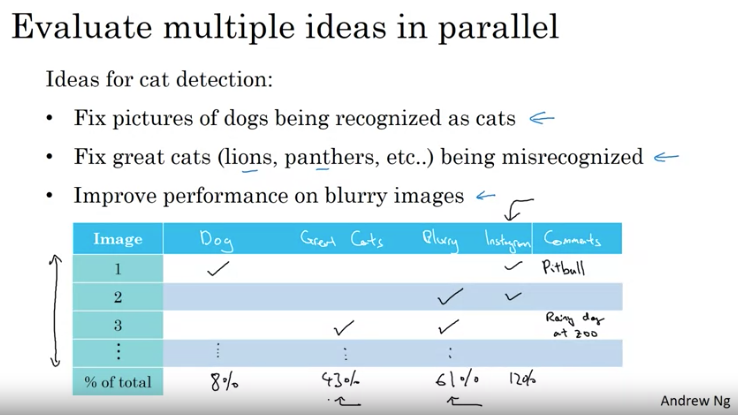 Evaluate multiple ideas in parallel
Ideas for cat detection:
• Fix pictures of dogs being recognized as cats
• Fix great cats (lions, panthers, etc..) being misrecognized
• Improve performance on blurry images
Image Dog Great Cats Blurry Instagram Comments
1 ✓ ✓ Pitbull
2 ✓ ✓
3 ✓ ✓ Rainy day at zoo
⋮ ⋮ ⋮ ⋮
% of total 8% 43% 61% 12%
Andrew Ng